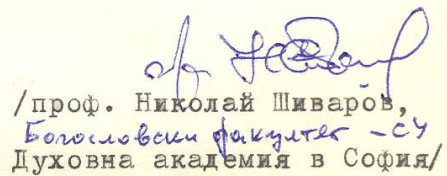 /проф. Николай Шиваров,
Богословски факултет - СУ
Духовна академия в София/